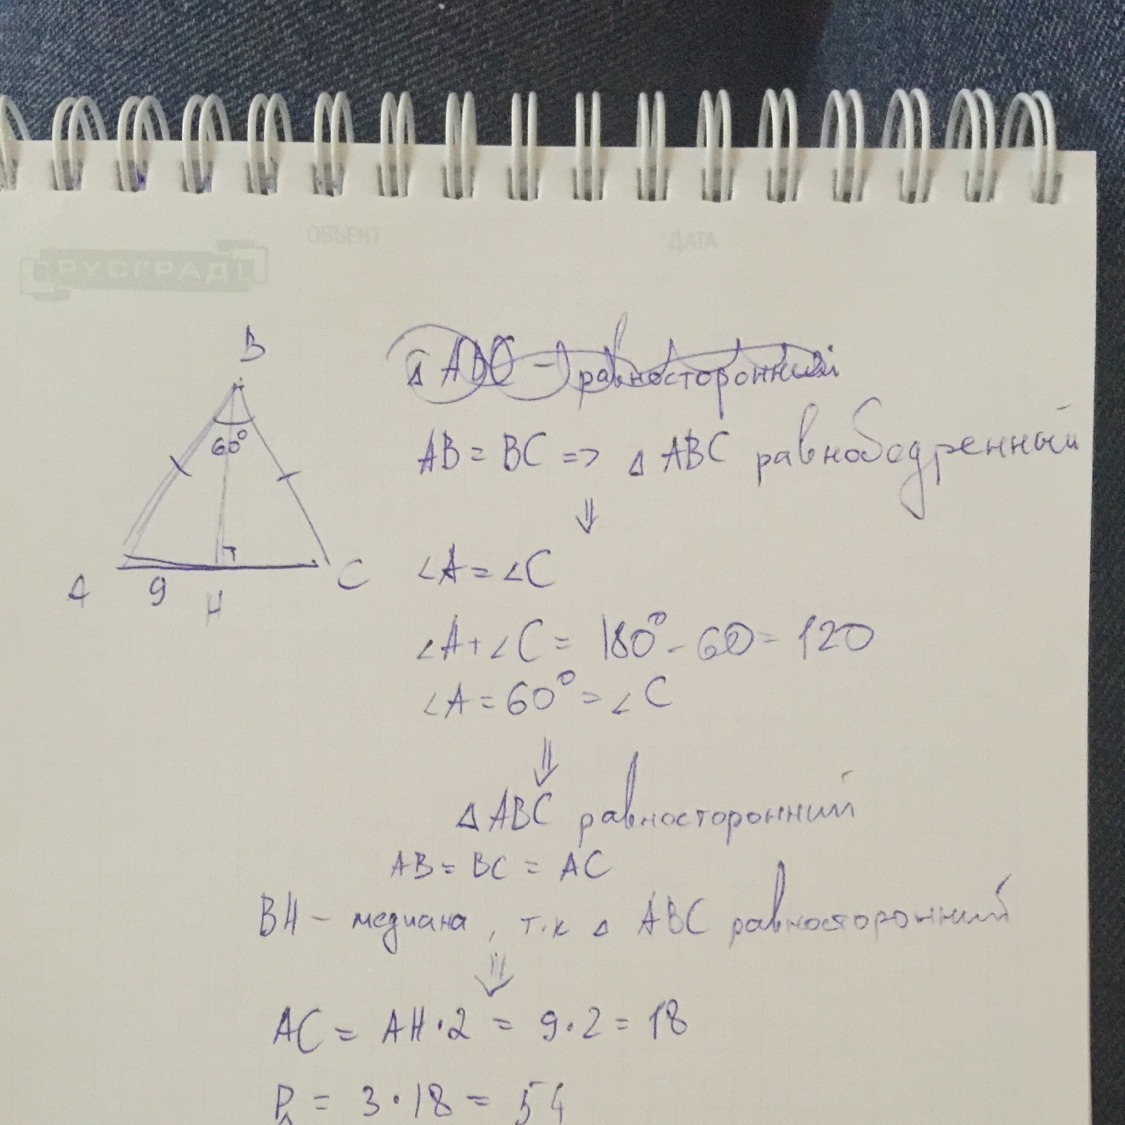 ОБЪЕКТ ДАТА
РУСГРАД
B
60°
A 9 H C
Δ ABC - равносторонний
AB = BC => Δ ABC равнобедренный
⇓
∠A = ∠C
∠A + ∠C = 180° - 60 = 120
∠A = 60° = ∠C
⇓
Δ ABC равносторонний
AB = BC = AC
BH - медиана, т.к Δ ABC равносторонний
⇓
AC = AH · 2 = 9 · 2 = 18
P = 3 · 18 = 54